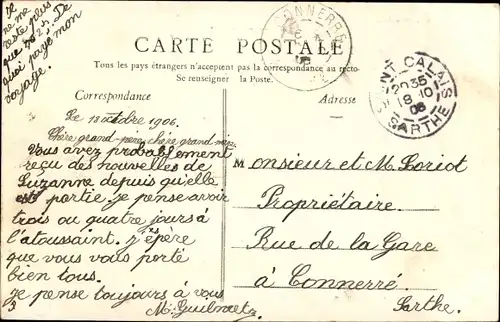 Il
ne me
reste plus
que
quoi payé mon
voyage.
CARTE POSTALE
Tous les pays étrangers n'acceptent pas la correspondance au recto
Se renseigner la Poste.
Correspondance
Adresse
CONNERRÉ
SAINT CALAIS
20 35
18 -10
06
SARTHE
Le 18 octobre 1906.
Chère grand-père chère grand-mère
Vous avez probablement
reçu des nouvelles de
Suzanne depuis qu'elle
est partie. je pense avoir
trois ou quatre jours à
l'atoussaint. j'espère
que vous vous porté
bien tous.
Je pense toujours à vous
M. Guilmetz
Monsieur et M. Loriot
Propriétaire.
Rue de la Gare
à Connerré.
Sarthe.